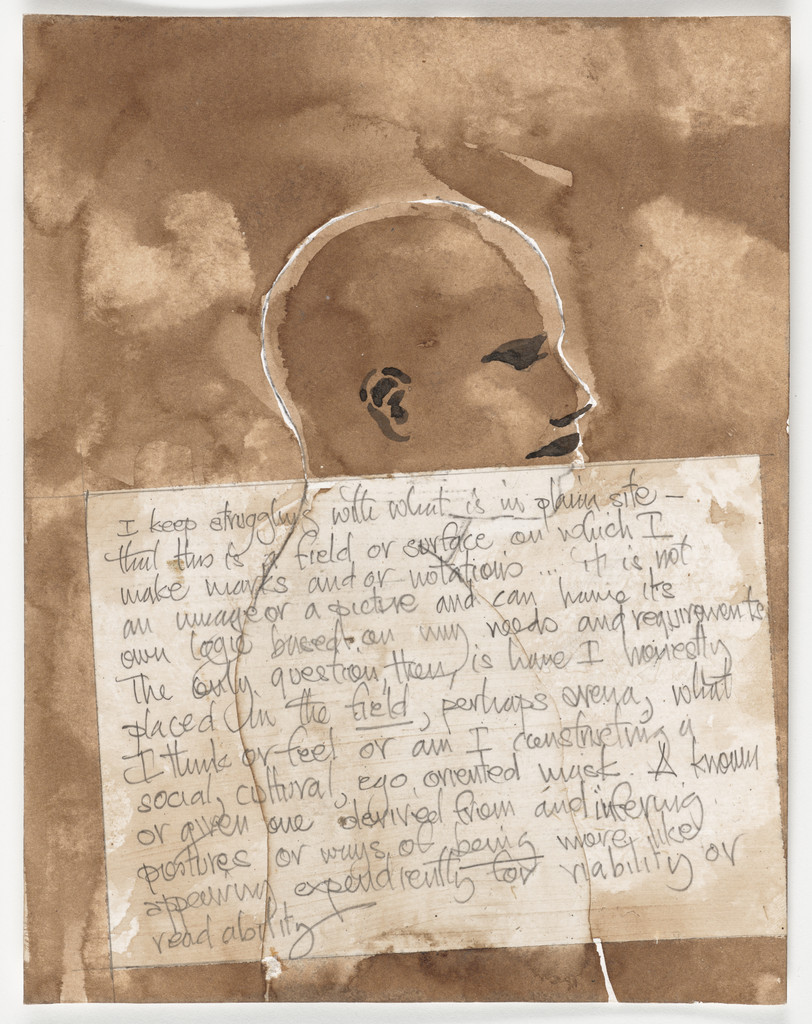 I keep struggling with what is in plain site –
that this is a field or surface on which I
make marks and or notations ... it is not
an image or a picture and can have its
own logic based on my needs and requirements
The only question, then, is have I honestly
placed in the field, perhaps arena, what
I think or feel or am I constructing a
social, cultural, ego oriented mask. A known
or given one derived from and inferring
postures or ways of being more like
appearing expendiently for viability or
readability